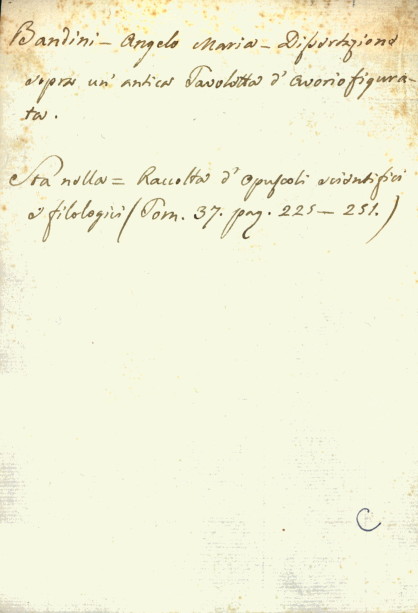 Bandini - Angelo Maria - Dissertazione
sopra un' antica Tavoletta d' avorio figura-
ta.
Sta nella = Raccolta d' Opuscoli scientifici
e filologici (Tom. 37. pag. 225 - 251.)
C